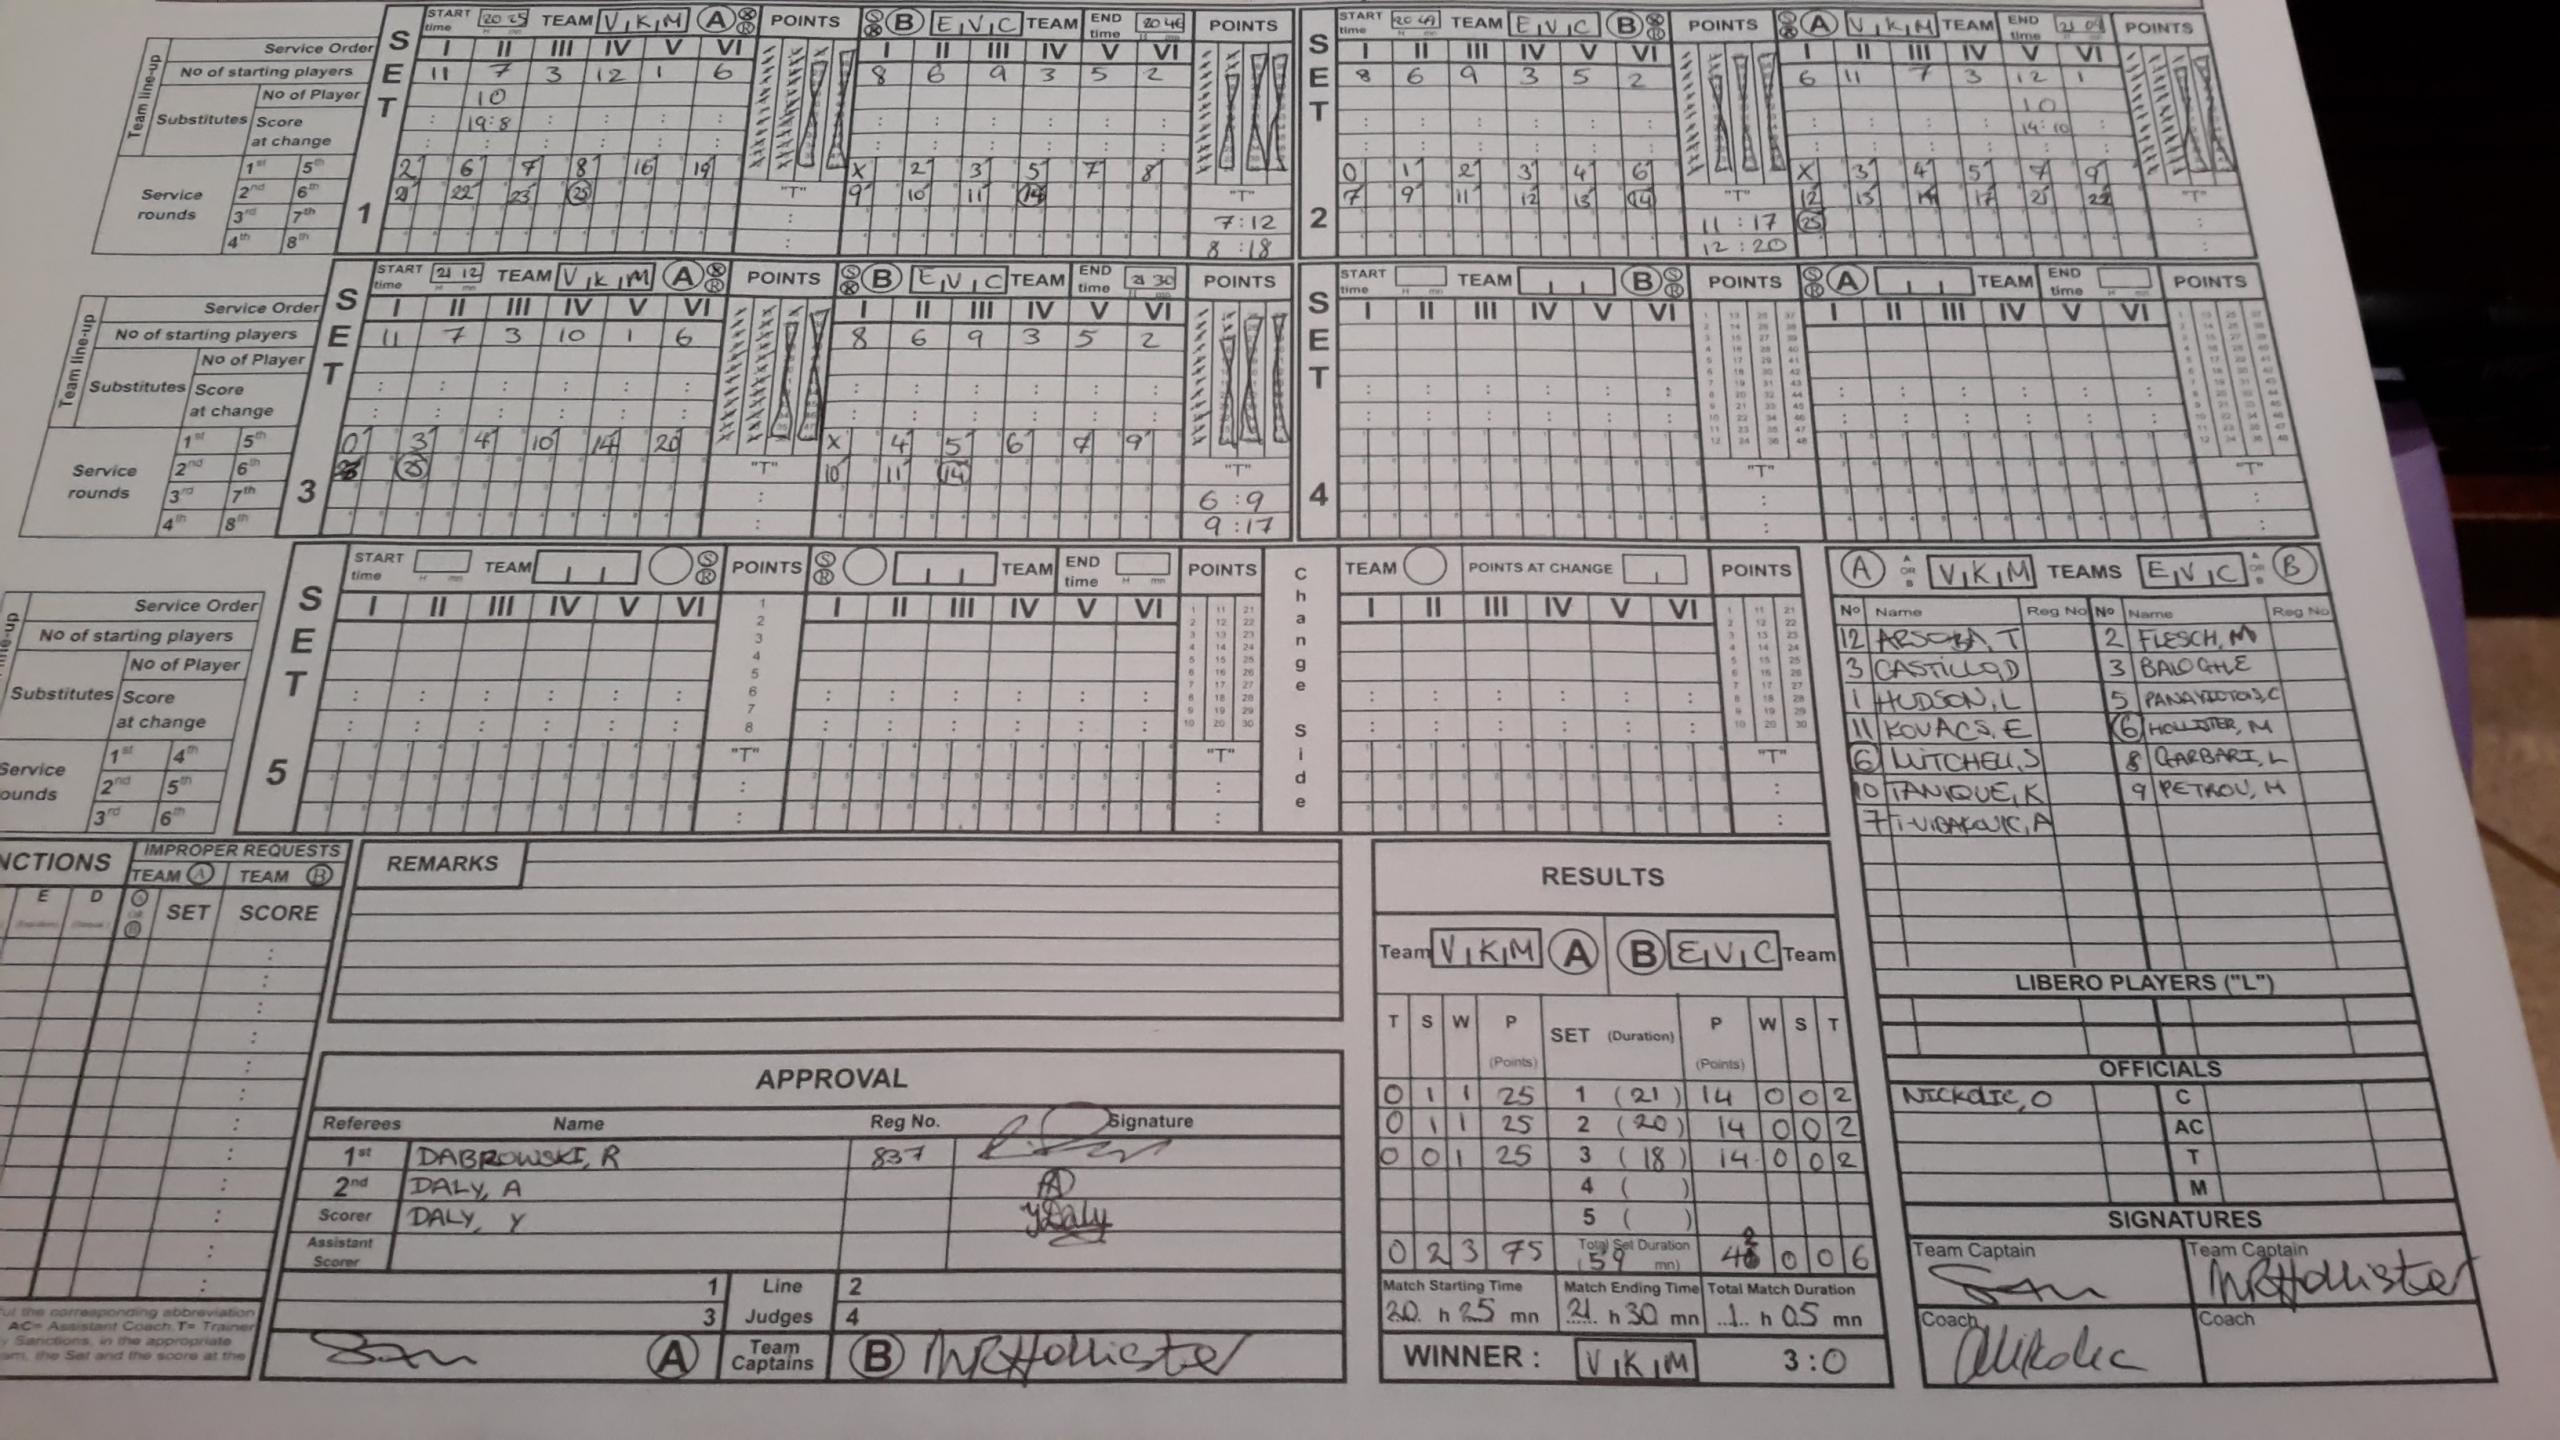 START time 20 25 TEAM V K M A S R POINTS S R B E V C TEAM END time 20 46 POINTS
Service Order I II III IV V VI I II III IV V VI
No of starting players 11 7 3 12 1 6 8 6 9 3 5 2
Team line-up Substitutes No of Player 10
Score at change 19:8
Service rounds 1st 5th 2 6 7 8 16 19 X 2 3 5 7 8
2nd 6th 21 22 23 25 "T" 9 10 11 14 "T"
3rd 7th 7:12
4th 8th 8:18
SET 1
START time 20 49 TEAM E V C B S R POINTS S R A V K M TEAM END time 21 09 POINTS
I II III IV V VI I II III IV V VI
8 6 9 3 5 2 6 11 7 3 12 1
10
14:10
0 1 2 3 4 6 X 3 4 5 7 9
7 9 11 12 13 14 "T" 12 13 14 17 21 22 "T"
11:17 25
12:20
SET 2
START time 21 12 TEAM V K M A S R POINTS S R B E V C TEAM END time 21 30 POINTS
Service Order I II III IV V VI I II III IV V VI
No of starting players 11 7 3 10 1 6 8 6 9 3 5 2
Team line-up Substitutes No of Player
Score at change
Service rounds 1st 5th 0 3 4 10 14 20 X 4 5 6 7 9
2nd 6th 25 "T" 10 11 14 "T"
3rd 7th 6:9
4th 8th 9:17
SET 3
START time TEAM B S R POINTS S R A TEAM END time POINTS
I II III IV V VI I II III IV V VI
"T" "T"
SET 4
START time TEAM S R POINTS S R TEAM END time POINTS
Service Order I II III IV V VI I II III IV V VI
No of starting players
No of Player
Substitutes Score at change
Service rounds 1st 4th "T" "T"
2nd 5th
3rd 6th
SET 5
Change Side
TEAM POINTS AT CHANGE POINTS
I II III IV V VI
"T"
A A OR B V K M TEAMS E V C A OR B B
No Name Reg No No Name Reg No
12 2 FLESCH, M
3 CASTILLO, D 3 BALOGH, E
1 HUDSON, L 5
11 KOVACS, E 6 HOLLISTER, M
6 MITCHELL, S 8 GARBARI, L
10 TANIQUE, K 9 PETROV, M
7
LIBERO PLAYERS ("L")
OFFICIALS
NICKOLIC, O C
AC
T
M
SIGNATURES
Team Captain Team Captain
MRHollister
Coach Coach
NCTIONS IMPROPER REQUESTS
TEAM A TEAM B
E D SET SCORE
REMARKS
APPROVAL
Referees Name Reg No. Signature
1st DABROWSKI, R 837
2nd DALY, A
Scorer DALY, Y YDaly
Assistant Scorer
1 Line 2
3 Judges 4
A Team Captains B MRHollister
ful the corresponding abbreviation
AC= Assistant Coach T= Trainer
y Sanctions, in the appropriate
am, the Set and the score at the
RESULTS
Team V K M A B E V C Team
T S W P (Points) SET (Duration) P (Points) W S T
0 1 1 25 1 (21) 14 0 0 2
0 1 1 25 2 (20) 14 0 0 2
0 0 1 25 3 (18) 14 0 0 2
4 ( )
5 ( )
0 2 3 75 Total Set Duration (59 mn) 42 0 0 6
Match Starting Time Match Ending Time Total Match Duration
20 h 25 mn 21 h 30 mn 1 h 05 mn
WINNER : V K M 3:0